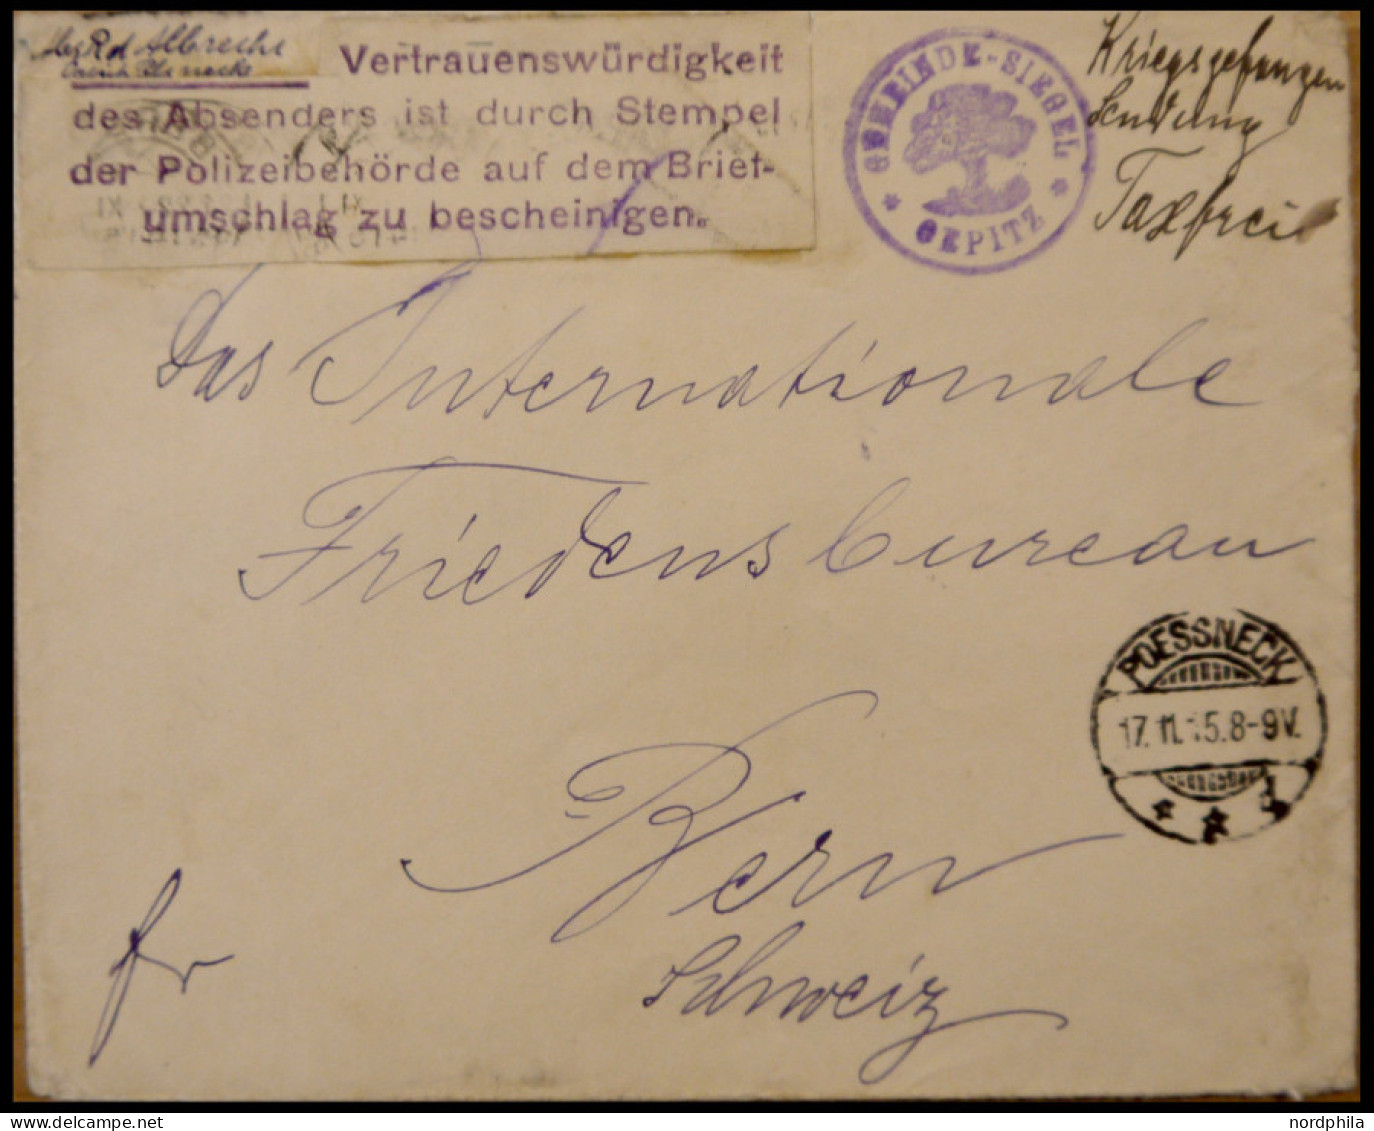 Albrecht
Vertrauenswürdigkeit
des Absenders ist durch Stempel
der Polizeibehörde auf dem Brief-
umschlag zu bescheinigen.
GEMEINDE-SIEGEL
* OEPITZ *
Kriegsgefangen
Sendung
Taxfrei
Das Internationale
Friedensbureau
Bern
Schweiz
fr
POESSNECK
17.11.15.8-9V.
nordphila